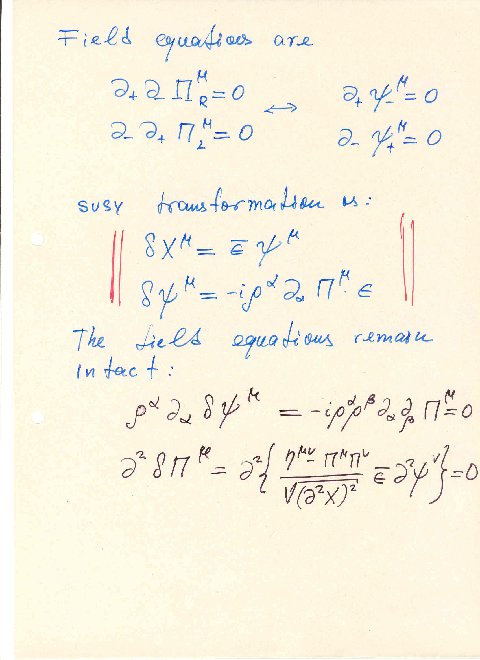 Field equations are
∂₊ ∂₋ Π^μ_R = 0 ↔ ∂₊ ψ₋^μ = 0
∂₋ ∂₊ Π^μ_L = 0 ∂₋ ψ₊^μ = 0
susy transformation is:
δX^μ = ε̄ ψ^μ
δψ^μ = -iρ^α ∂_α Π^μ ε
The field equations remain
intact:
ρ^α ∂_α δψ^μ = -iρ^α ρ^β ∂_α ∂_β Π^μ = 0
∂² δΠ^μ = ∂² { (η^{μν} - Π^μ Π^ν) / √(∂²X)² ε̄ ∂²ψ^ν } = 0